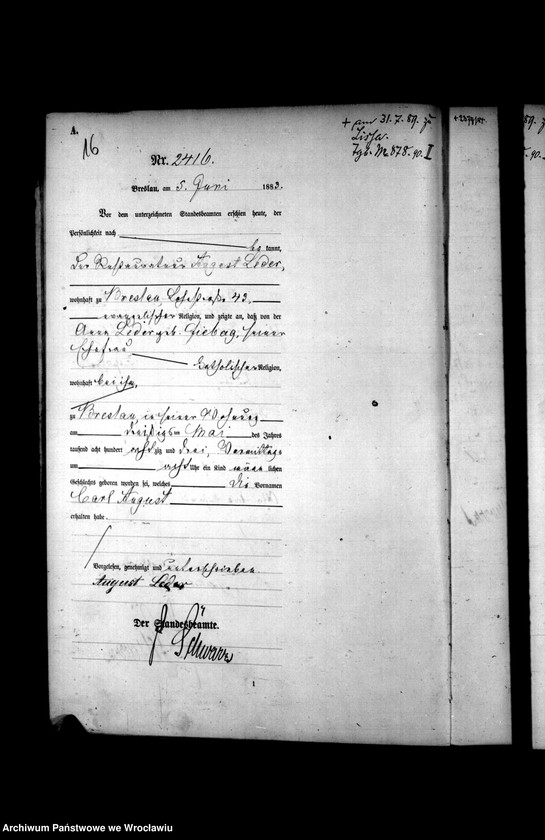 A.
16
+ am 31.7.89. zu
Lissa.
Nr. 2416.
Breslau, am 5. Juni 1883.
Vor dem unterzeichneten Standesbeamten erschien heute, der
Persönlichkeit nach
be kannt,
der Restaurateur August Leder,
wohnhaft zu Breslau, 43.
evangelischer Religion, und zeigte an, daß von der
Anna Leder geb. seiner
Ehefrau
katholischer Religion,
wohnhaft bei ihm,
zu Breslau, in seiner Wohnung
am dreißigsten Mai des Jahres
tausend acht hundert acht zig und drei, Vormittags
um acht Uhr ein Kind männ lichen
Geschlechts geboren worden sei, welches die Vornamen
Carl August
erhalten habe.
Vorgelesen, genehmigt und unterschrieben
August Leder
Der Standesbeamte.
Schwarz
1
Archiwum Państwowe we Wrocławiu